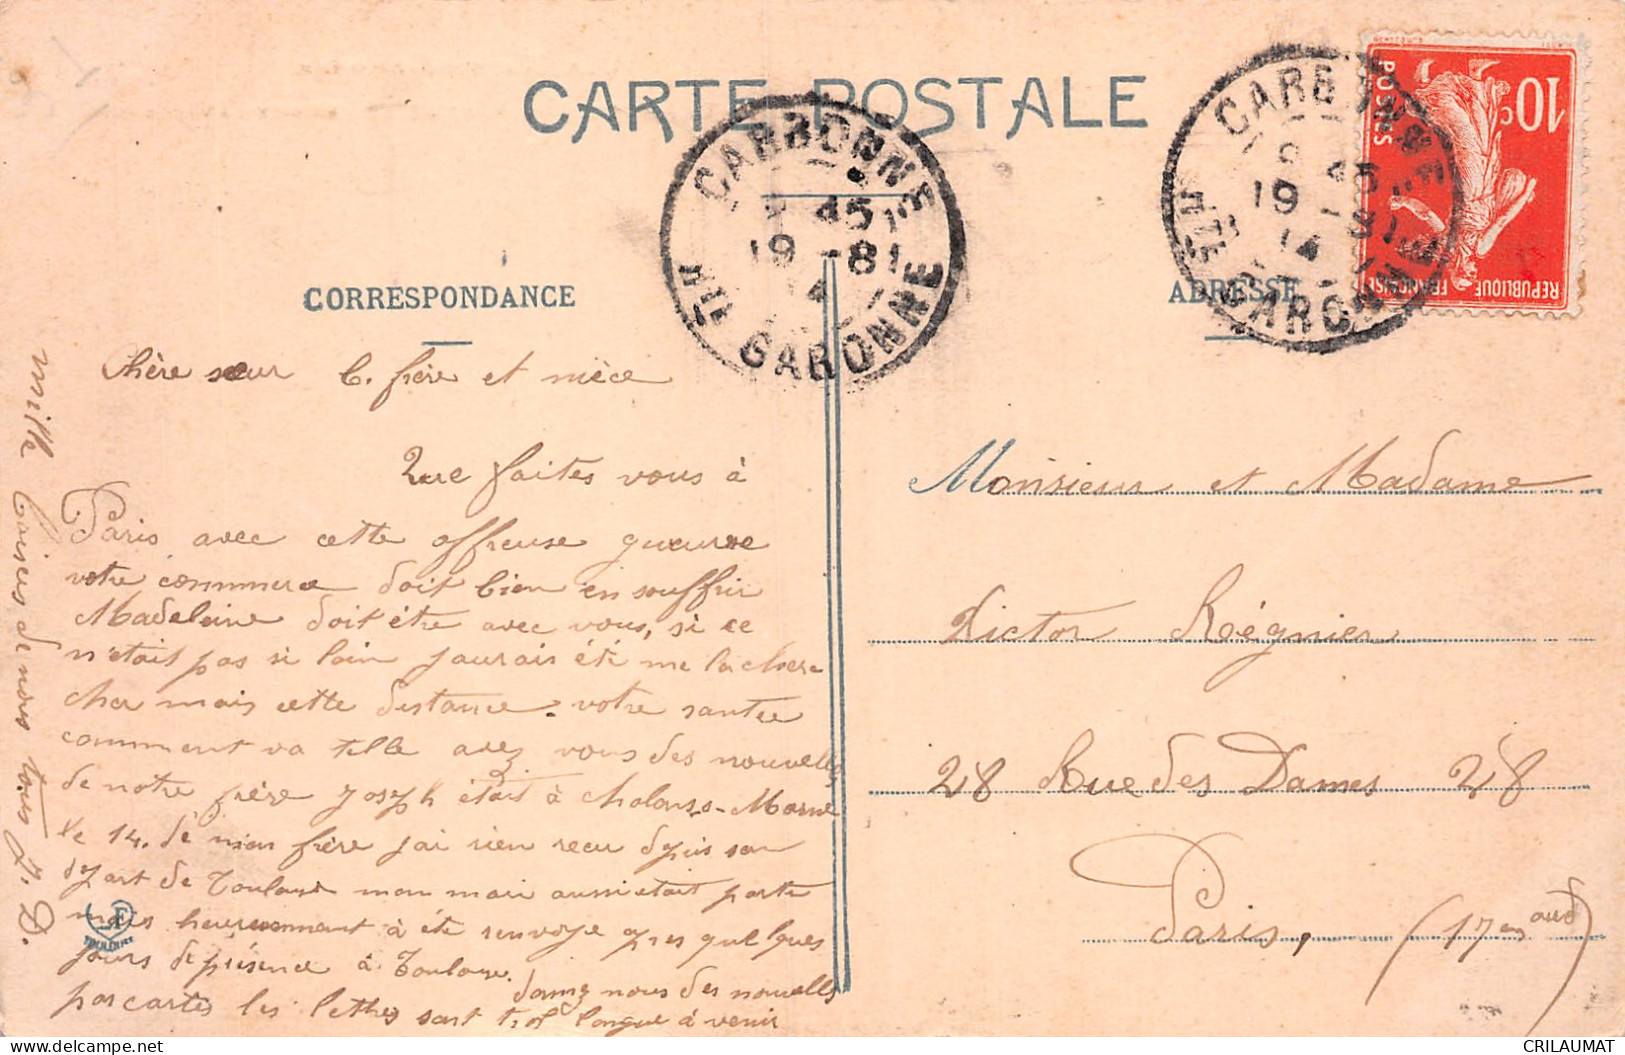 CARTE POSTALE
CARBONNE
45
19 - 8
14
Hte GARONNE
CARBONNE
45
19 - 8
14
Hte GARONNE
10c
POSTES
REPUBLIQUE FRANÇAISE
CORRESPONDANCE
ADRESSE
chère sœur b. frère et nièce
Que faites vous à
Paris avec cette affreuse guerre
votre commerce doit bien en souffrir
Madeleine doit être avec vous, si ce
n'etait pas si loin j'aurais été me la cherc
cher mais cette distance. votre santée
comment va telle avez vous des nouvelles
de notre frère Joseph était à Chalons-s-Marne
le 14. de mon frère j'ai rien recu depuis son
depart de Toulouse mon mari aussi etait parti
mais heureusement à été renvoye apres quelques
jours de présence à Toulouse.
donnez nous des nouvelles
par cartes les lettres sont trop longue à venir
mille baises de nous tous J. D.
TOULOUSE
Monsieur et Madame
Victor Régnier
28 Rue des Dames 28
Paris, (17 em ard)
CRILAUMAT